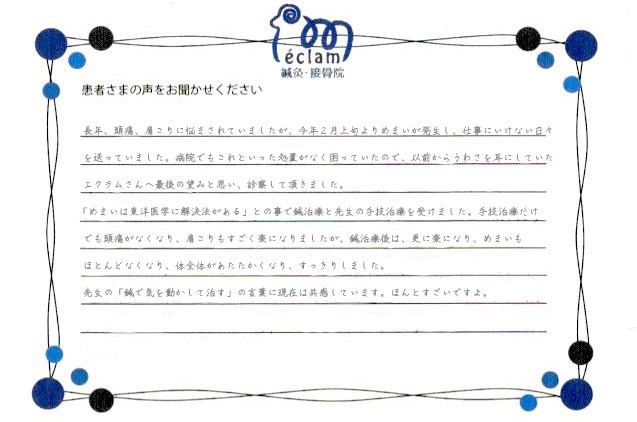 éclam
鍼灸・接骨院
患者さまの声をお聞かせください
長年、頭痛、肩こりに悩まされていましたが、今年2月上旬よりめまいが発生し、仕事にいけない日々
を送っていました。病院でもこれといった処置がなく困っていたので、以前からうわさを耳にしていた
エクラムさんへ最後の望みと思い、診察して頂きました。
「めまいは東洋医学に解決法がある」との事で鍼治療と先生の手技治療を受けました。手技治療だけ
でも頭痛がなくなり、肩こりもすごく楽になりましたが、鍼治療後は、更に楽になり、めまいも
ほとんどなくなり、体全体があたたかくなり、すっきりしました。
先生の「鍼で気を動かして治す」の言葉に現在は共感しています。ほんとすごいですよ。